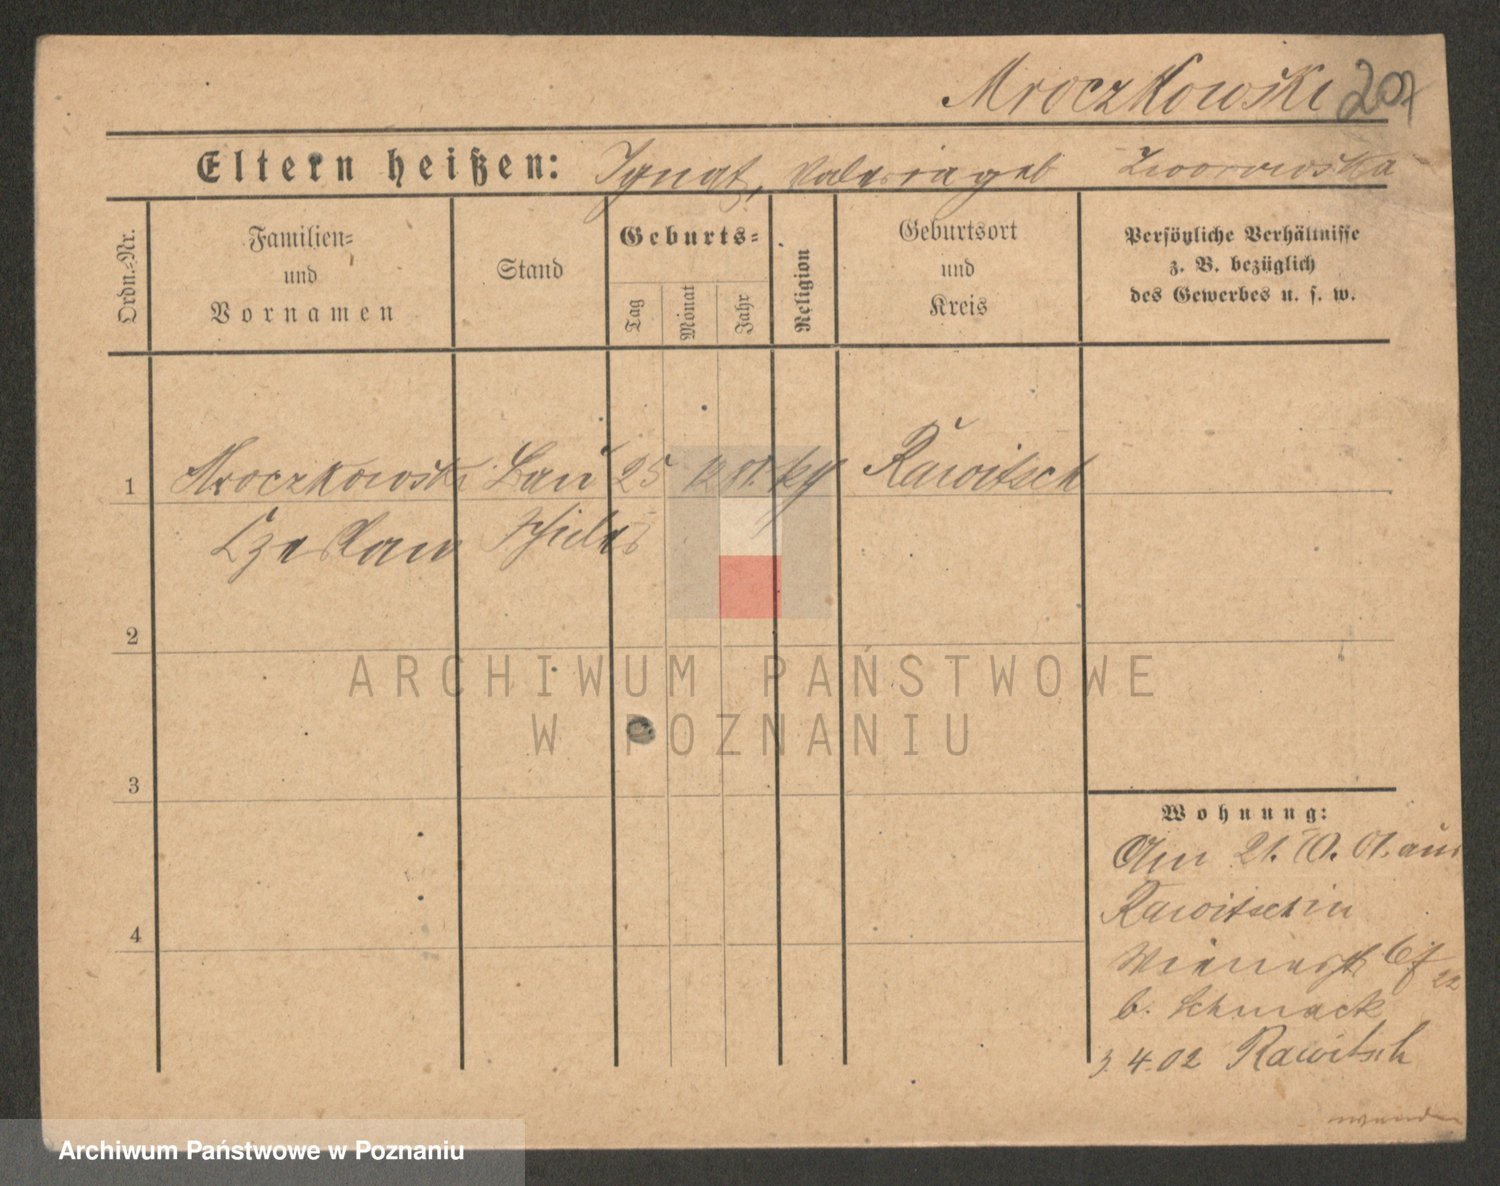 Mroczkowski 207
Eltern heißen: Ignatz, Valeria geb Zworowska
Ordn.-Nr.
Familien-
und
Vornamen
Stand
Geburts-
Tag
Monat
Jahr
Religion
Geburtsort
und
Kreis
Persönliche Verhältnisse
z. B. bezüglich
des Gewerbes u. s. w.
1 Mroczkowski Bau 25 12 81. kth Rawitsch
Czeslaw schüler
2
3
4
ARCHIWUM PAŃSTWOWE
W POZNANIU
Wohnung:
Am 21. 10. 01. aus
Rawitsch in
Wienerstr 6f
22
b. Schmack
3. 4. 02 Rawitsch
wenden
Archiwum Państwowe w Poznaniu